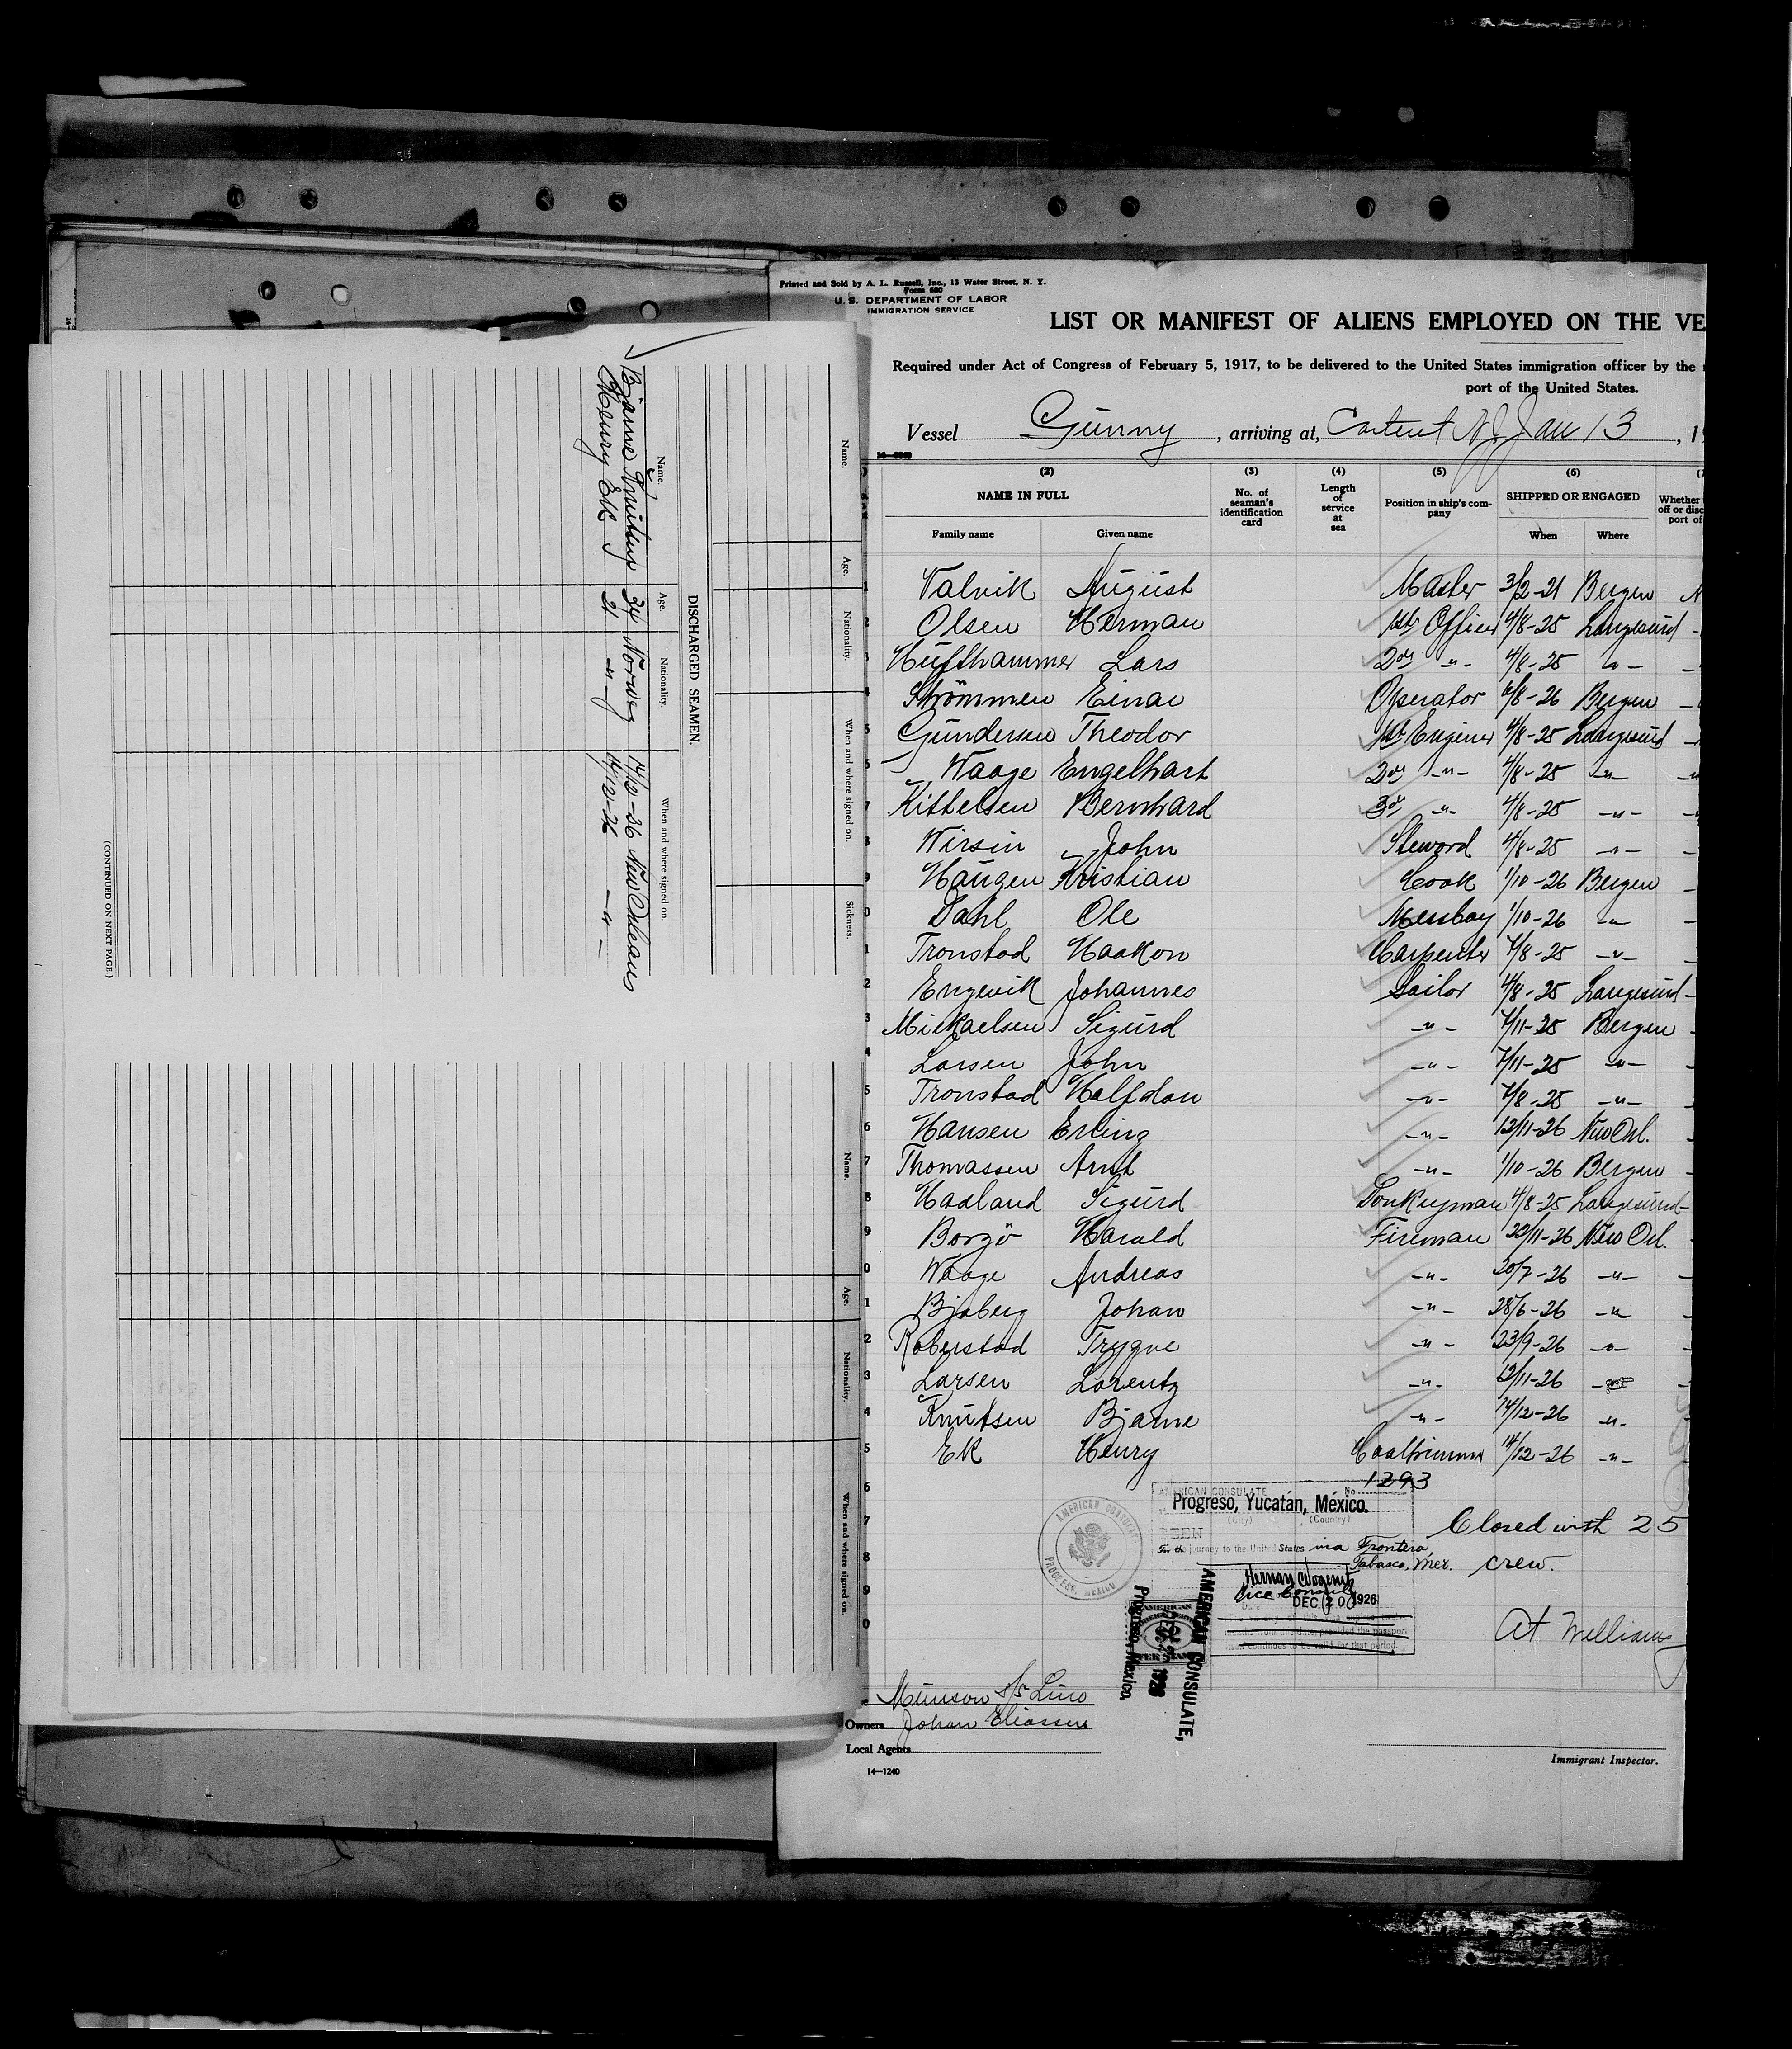 Printed and Sold by A. L. Russell, Inc., 13 Water Street, N. Y.
Form 680
U. S. DEPARTMENT OF LABOR
IMMIGRATION SERVICE
LIST OR MANIFEST OF ALIENS EMPLOYED ON THE VE
Required under Act of Congress of February 5, 1917, to be delivered to the United States immigration officer by the
port of the United States.
Vessel Gunny, arriving at, Carteret N.J. Jan 13, 19
14—1240
(2) (3) (4) (5) (6) (7
NAME IN FULL No. of seaman's identification card Length of service at sea Position in ship's company SHIPPED OR ENGAGED Whether off or disc port of
Family name Given name When Where
1 Valvik August Master 3/2-21 Bergen
2 Olsen Herman 1st Officer 4/8-25 Langesund -
3 Hufthammer Lars 2nd -"- 4/8-25 -"- -
4 Strömmen Einar Operator 6/8-26 Bergen -
5 Gundersen Theodor 1st Enginer 4/8-25 Langesund -
6 Waage Engelhart 2nd -"- 4/8-25 -"- -"
7 Kittelsen Bernhard 3d -"- 4/8-25 -"- -
8 Wirsin John Steword 4/8-25 -"- -
9 Haugen Kristian Cook 1/10-26 Bergen -
0 Dahl Ole Messboy 1/10-26 -"- -
1 Tronstad Haakon Carpenter 7/8-25 -"- -
2 Engevik Johannes Sailor 4/8-25 Langesund -
3 Mickaelsen Sigurd -"- 7/11-25 Bergen -
4 Larsen John -"- 7/11-25 -"-
5 Tronstad Halfdan -"- 7/8-25 -"- -
6 Hansen Erling -"- 12/11-26 New Orl. -
7 Thomassen Arnt -"- 1/10-26 Bergen -
8 Hasland Sigurd Donkeyman 4/8-25 Langesund -
9 Borgö Harald Fireman 22/11-26 New Orl. -
0 Waage Andreas -"- 20/7-26 -"- -
1 Bjoberg Johan -"- 28/6-26 -"- -
2 Roberstad Trygve -"- 23/9-26 -"- -
3 Larsen Lorentz -"- 12/11-26 -
4 Knutsen Bjarne -"- 14/12-26 -"-
5 Ek Henry Coaltrimmer 14/12-26 -"-
6
7
8
9
0
1293
AMERICAN CONSULATE No
Progreso, Yucatán, México.
(City) (Country)
SEEN
For the journey to the United States via Frontera,
Tabasco, Mex.
Vice Consul
DEC 20 1926
provided the passport
continues to be valid for that period.
AMERICAN CONSULATE
PROGRESO, MEXICO
AMERICAN
$2
AMERICAN CONSULATE,
Progreso, Mexico.
Closed with 25
crew.
At Williams
Munson S/S Line
Owners Johan Eliassen
Local Agents
14—1240
Immigrant Inspector.
Name. Age. Nationality. When and where signed on. Sickness.
DISCHARGED SEAMEN.
Name. Age. Nationality. When and where signed on.
Bjarne Knutsen 24 Norweg 14/12-26 New Orleans
Henry Ek 21 -"- 14/12-26 -"-
(CONTINUED ON NEXT PAGE.)
Name. Age. Nationality. When and where signed on.